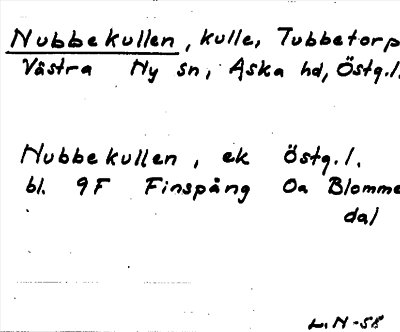 Nubbekullen, kulle, Tubbetorp
Västra Ny sn, Aska hd, Östg.l.
Nubbekullen, ek Östg.l.
bl. 9F Finspång Oa Blomme
dal
L.N-58